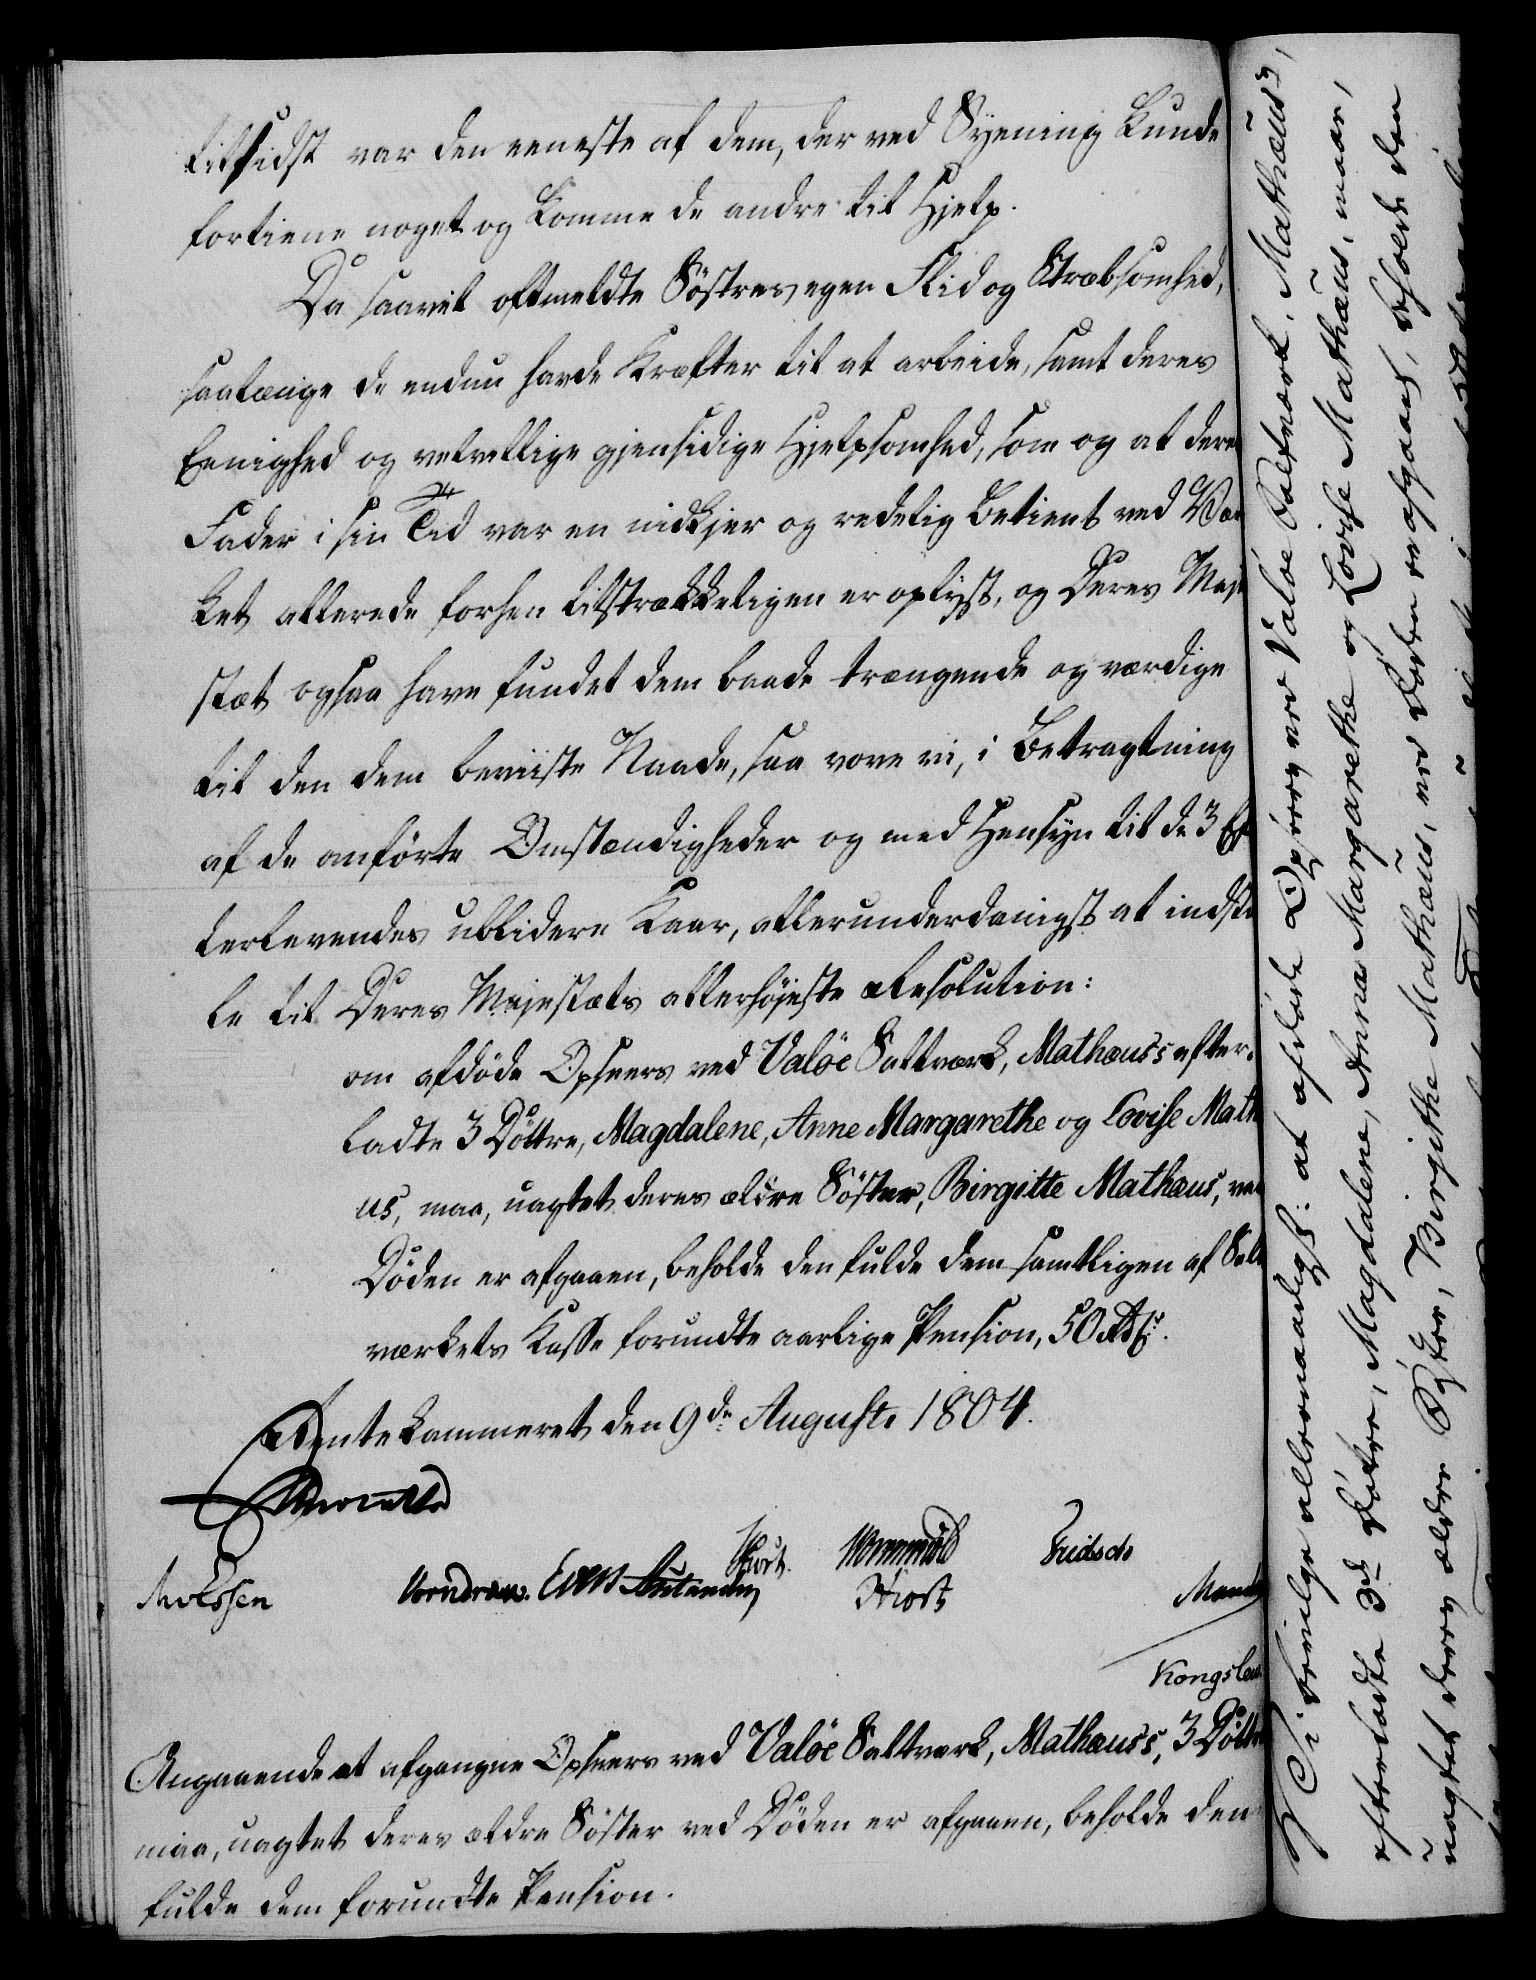 tilsidst var den eeneste af dem, der ved Syening kunde
fortiene noget og komme de andre til Hjelp.
Da saavel oftmeldte Söstres egen Flid og Stræbsomhed,
saalænge de endnu havde Kræfter til at arbeide, samt deres
Eenighed og velvillige gjensidige Hjelpsomhed, som og at dere
Fader i sin Tid var en nidkjer og redelig Betient ved Vær
ket allerede forhen tilstrækkeligen er oplyst, og Deres Maje
stæt ogsaa have fundet dem baade trængende og værdige
til den dem beviiste Naade, saa vove vi, i Betragtning
af de anförte Omstændigheder og med Hensyn til de 3 Ef
terlevendes ublidere Kaar, allerunderdanigst at indstil
le til Deres Majestæts allerhöjeste Resolution:
om afdöde Opseers ved Valöe Saltværk, Mathæus's efter-
ladte 3 Döttre, Magdalene, Anne Margarethe og Lovise Math
us, maa, uagtet deres ældre Söster, Birgitte Mathæus, ved
Döden er afgaaen, beholde den fulde dem samtligen af Salt
værkets Kasse forundte aarlige Pension, 50 Rdlr.
Rentekammeret den 9de Augusti 1804.
Vorndran. Fridsch
Kongslew
Angaaende at afgangne Opseers ved Valöe Saltværk, Mathæus's, 3 Döttre
maa, uagtet deres ældre Söster ved Döden er afgaaen, beholde den
fulde dem forundte Pension.
Vi bevilge allernaadigst: at afdöde Opseers ved Valöe Saltværk, Mathæus's,
efterladte 3de Döttre, Magdalene, Anna Margarethe og Lovise Mathæus, maae,
uagtet deres ældre Söster, Birgithe Mathæus, ved Döden er afgaaet, beholde den